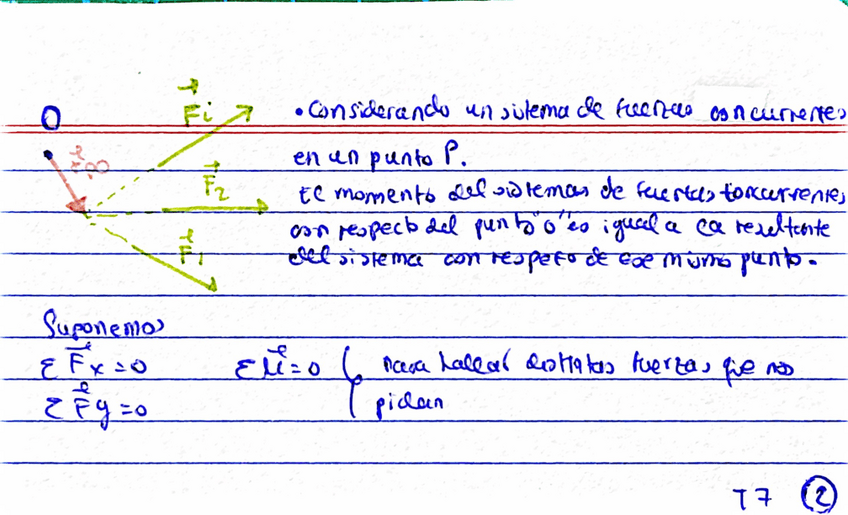 O
F⃗i
• Considerando un sistema de fuerzas concurrentes
r⃗PO
en un punto P.
F⃗2
El momento del sistemas de fuerzas concurrentes
con respecto del punto "o" es igual a la resultante
F⃗1
del sistema con respeto de ese mismo punto.
Suponemos
Σ F⃗x = 0 Σ M⃗ = 0 para hallar distintas fuerzas que nos
Σ F⃗y = 0 pidan
T7 2